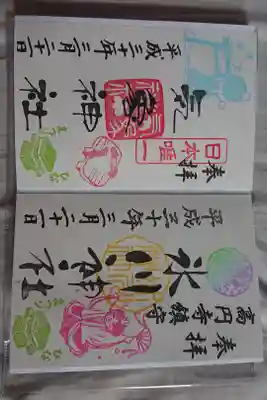 奉拝
日本唯一
気象神社
平成三十年三月二十一日
奉拝
高円寺鎮守
氷川神社
平成三十年三月二十一日